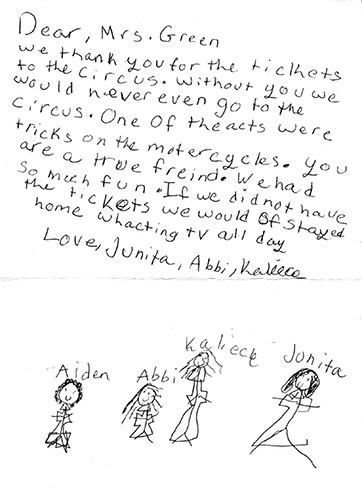 Dear, Mrs. Green
we thank you for the tickets
to the circus. without you we
would never even go to the
circus. One of the acts were
tricks on the motercycles. you
are a true freind. we had
so much fun. If we did not have
the tickets we would of stayed
home whacting tv all day
Love, Junita, Abbi, Kaliece
Aiden Abbi Kaliece Junita